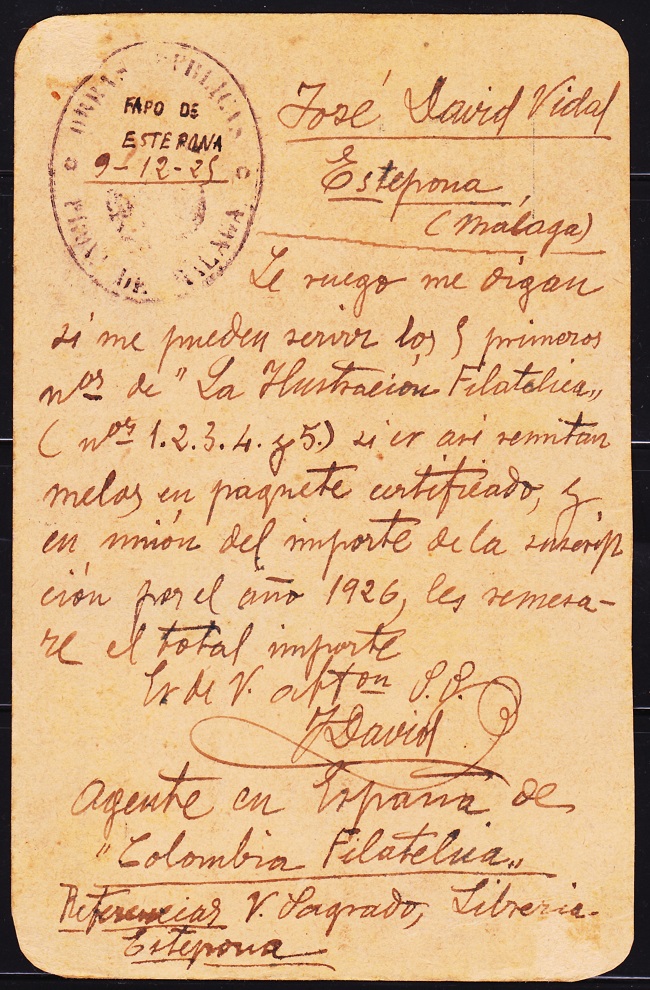 OBRAS PUBLICAS
FARO DE
ESTEPONA
9-12-25
PROVA DE MALAGA
José David Vidal
Estepona
(Málaga)
Le ruego me digan
si me pueden servir los 5 primeros
nos de "La Ilustración Filatelica„
(nos 1.2.3.4. y 5.) si es asi remitan
melos en paquete certificado, y
en unión del importe de la suscrip
ción por el año 1926, les remesa-
re el total importe
Es de V. attọn S.S.
JDavid
Agente en España de
"Colombia Filatelica„
Referencias V. Sagrado, Libreria-
Estepona